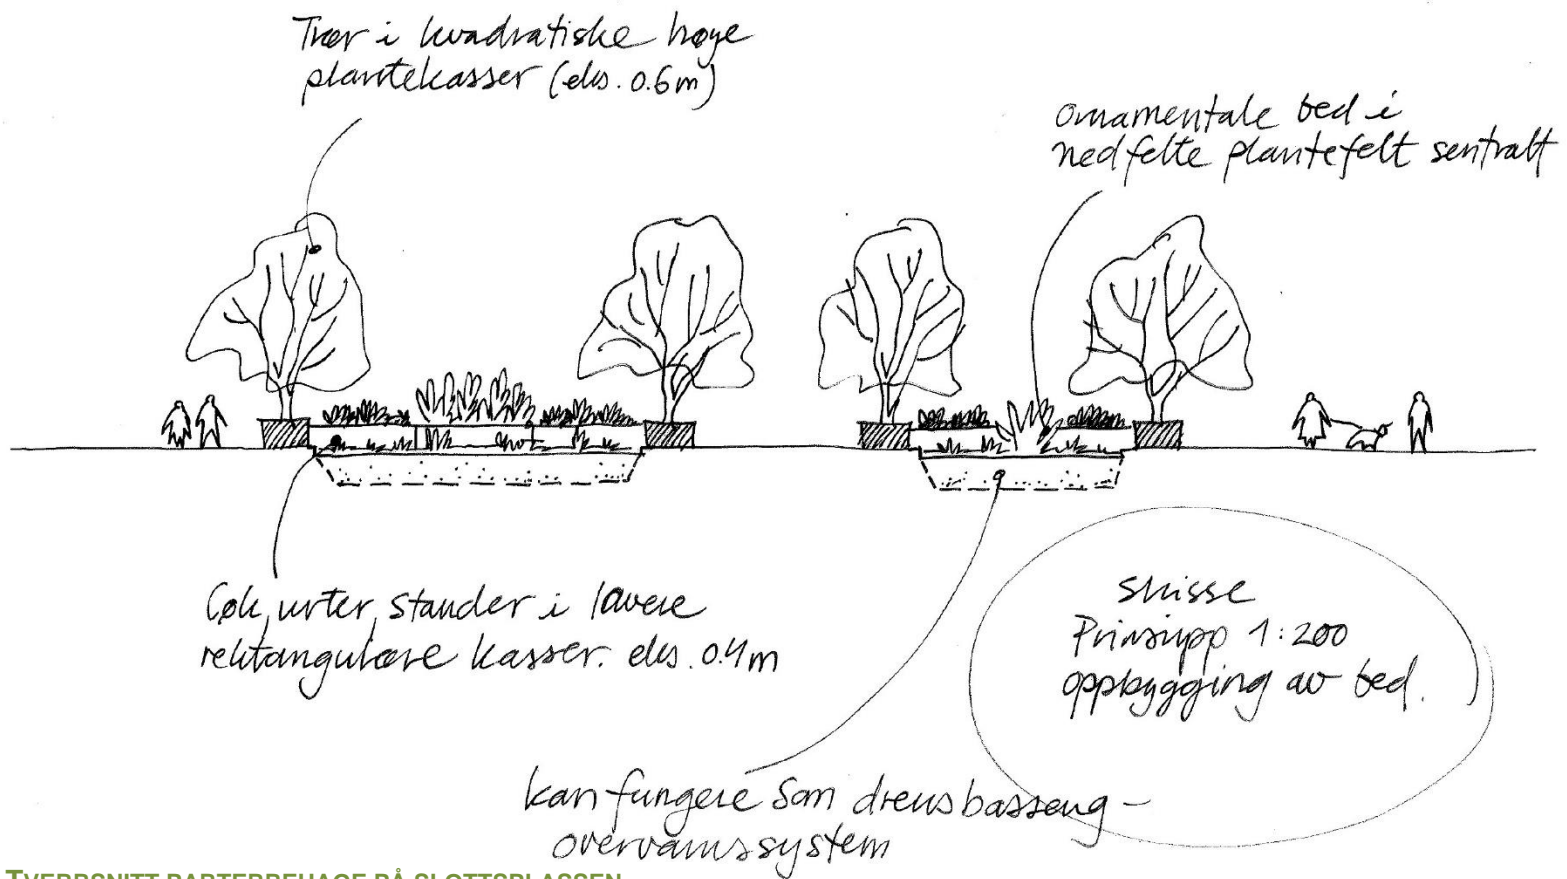 Trær i kvadratiske høye
plantekasser (eks. 0.6m)
ornamentale bed i
nedfelte plantefelt sentralt
urter, stauder i lavere
rektangulære kasser. eks. 0.4m
skisse
Prinsipp 1:200
oppbygging av bed.
kan fungere som drensbasseng –
overvannssystem
TVERRSNITT PARTERREHAGE PÅ SLOTTSPLASSEN